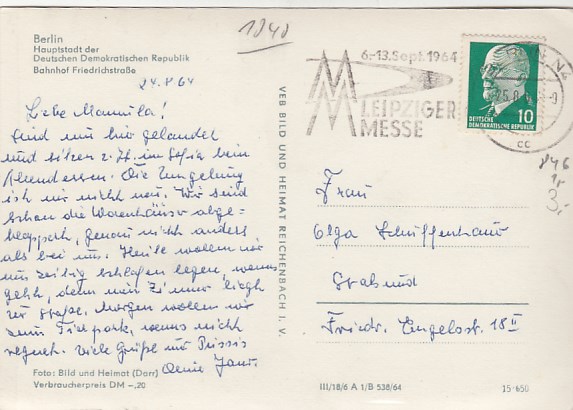 Berlin
Hauptstadt der
Deutschen Demokratischen Republik
Bahnhof Friedrichstraße
24.8.64
Liebe Mammila!
Sind nur hier gelandet
und sitzen z. Zt. im Sofia beim
Abendessen. Die Umgebung
ist mir nicht neu. Wir sind
schon die Warenhäuser abge-
klappert, genau nicht anders
als bei uns. Heute wollen wir
uns zeitig schlafen legen, wenns
geht, denn mein Zimmer liegt
zur Straße. Morgen wollen wir
zum Tierpark, wenns nicht
regnet. Viele Grüße und Bussis
Deine
Foto: Bild und Heimat (Darr)
Verbraucherpreis DM -,20
VEB BILD UND HEIMAT REICHENBACH I. V.
1040
6.-13. Sept. 1964
MM
LEIPZIGER
MESSE
25.8.
cc
10
DEUTSCHE
DEMOKRATISCHE REPUBLIK
846
1,-
3,-
Frau
Olga Schiffenhauer
Stralsund
Friedr. Engelsstr. 18 II
III/18/6 A 1/B 538/64
15 650